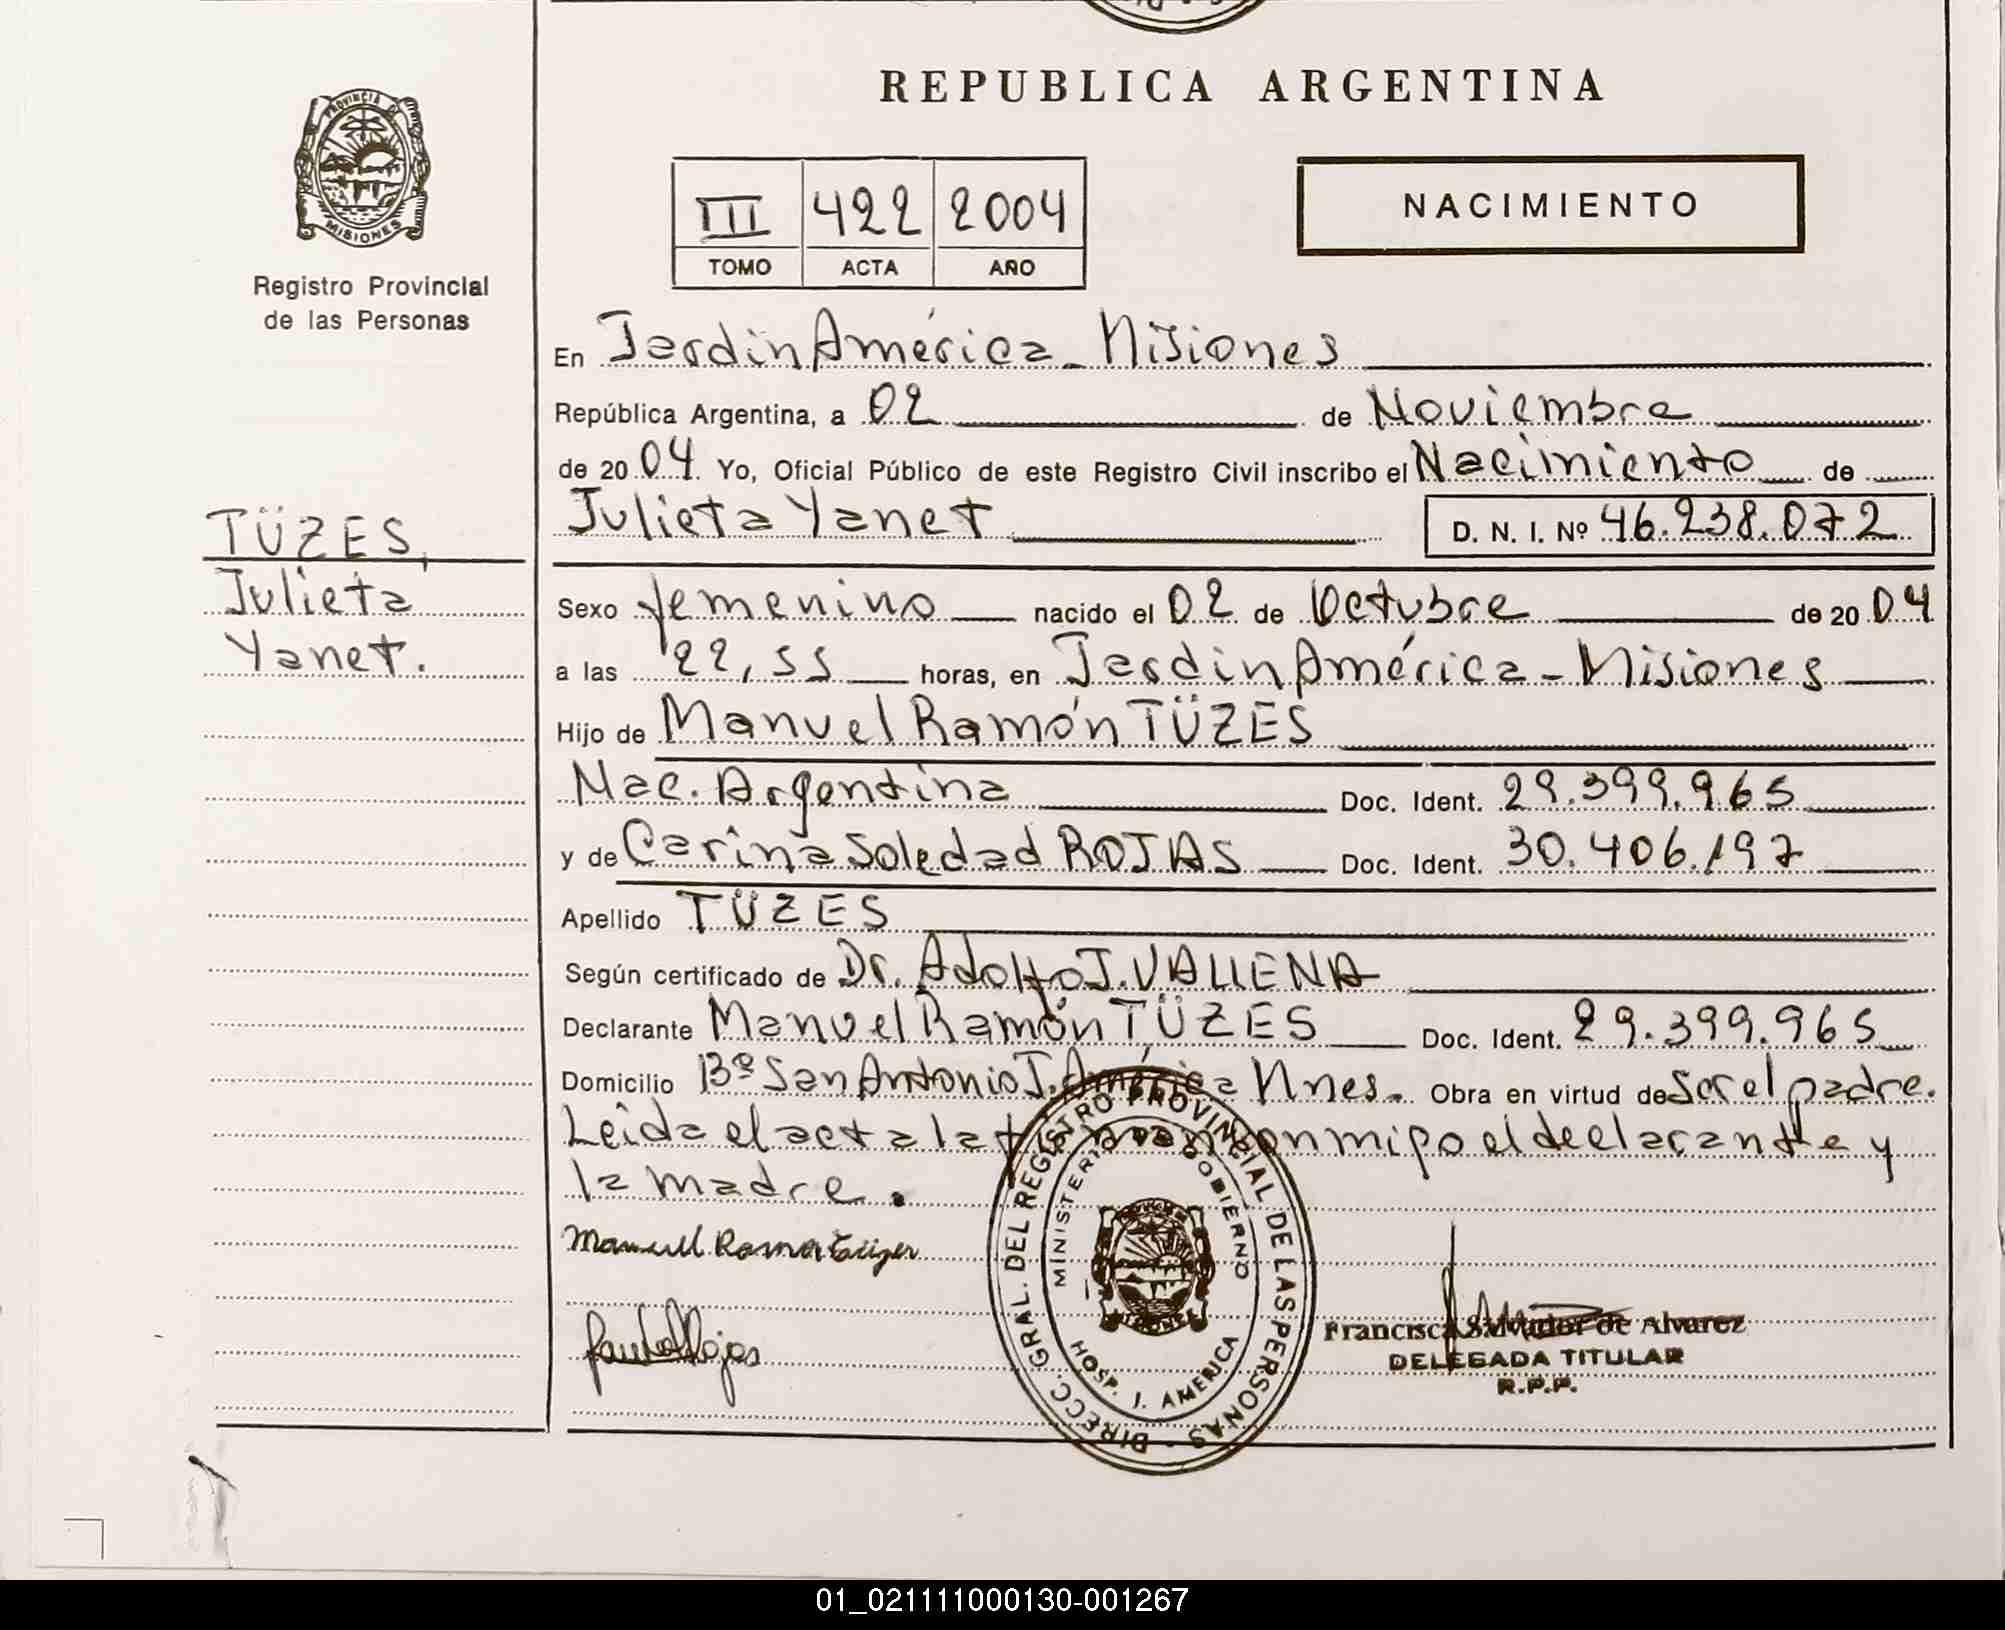 REPUBLICA ARGENTINA
PROVINCIA DE
MISIONES
Registro Provincial
de las Personas
III 422 2004
TOMO ACTA AÑO
NACIMIENTO
En Jardin América - Misiones
República Argentina, a 02 de Noviembre
de 2004. Yo, Oficial Público de este Registro Civil inscribo el Nacimiento de
Julieta Yanet D. N. I. Nº 46.238.072
TÜZES,
Julieta
Yanet.
Sexo femenino nacido el 02 de Octubre de 2004
a las 22,55 horas, en Jardin América - Misiones
Hijo de Manuel Ramón TÜZES
Nac. Argentina Doc. Ident. 29.399.965
y de Carina Soledad ROJAS Doc. Ident. 30.406.197
Apellido TÜZES
Según certificado de Dr. Adolfo J. VALLENA
Declarante Manuel Ramón TÜZES Doc. Ident. 29.399.965
Domicilio Bº San Antonio J. América Mnes. Obra en virtud de Ser el padre.
Leida el acta la con migo el declarante y
la madre.
Manuel Ramon
Rojas
DIRECC. GRAL. DEL REGISTRO PROVINCIAL DE LAS PERSONAS -
MINISTERIO DE GOBIERNO
HOSP. J. AMERICA
Francisca Salvador de Alvarez
DELEGADA TITULAR
R.P.P.
01_021111000130-001267